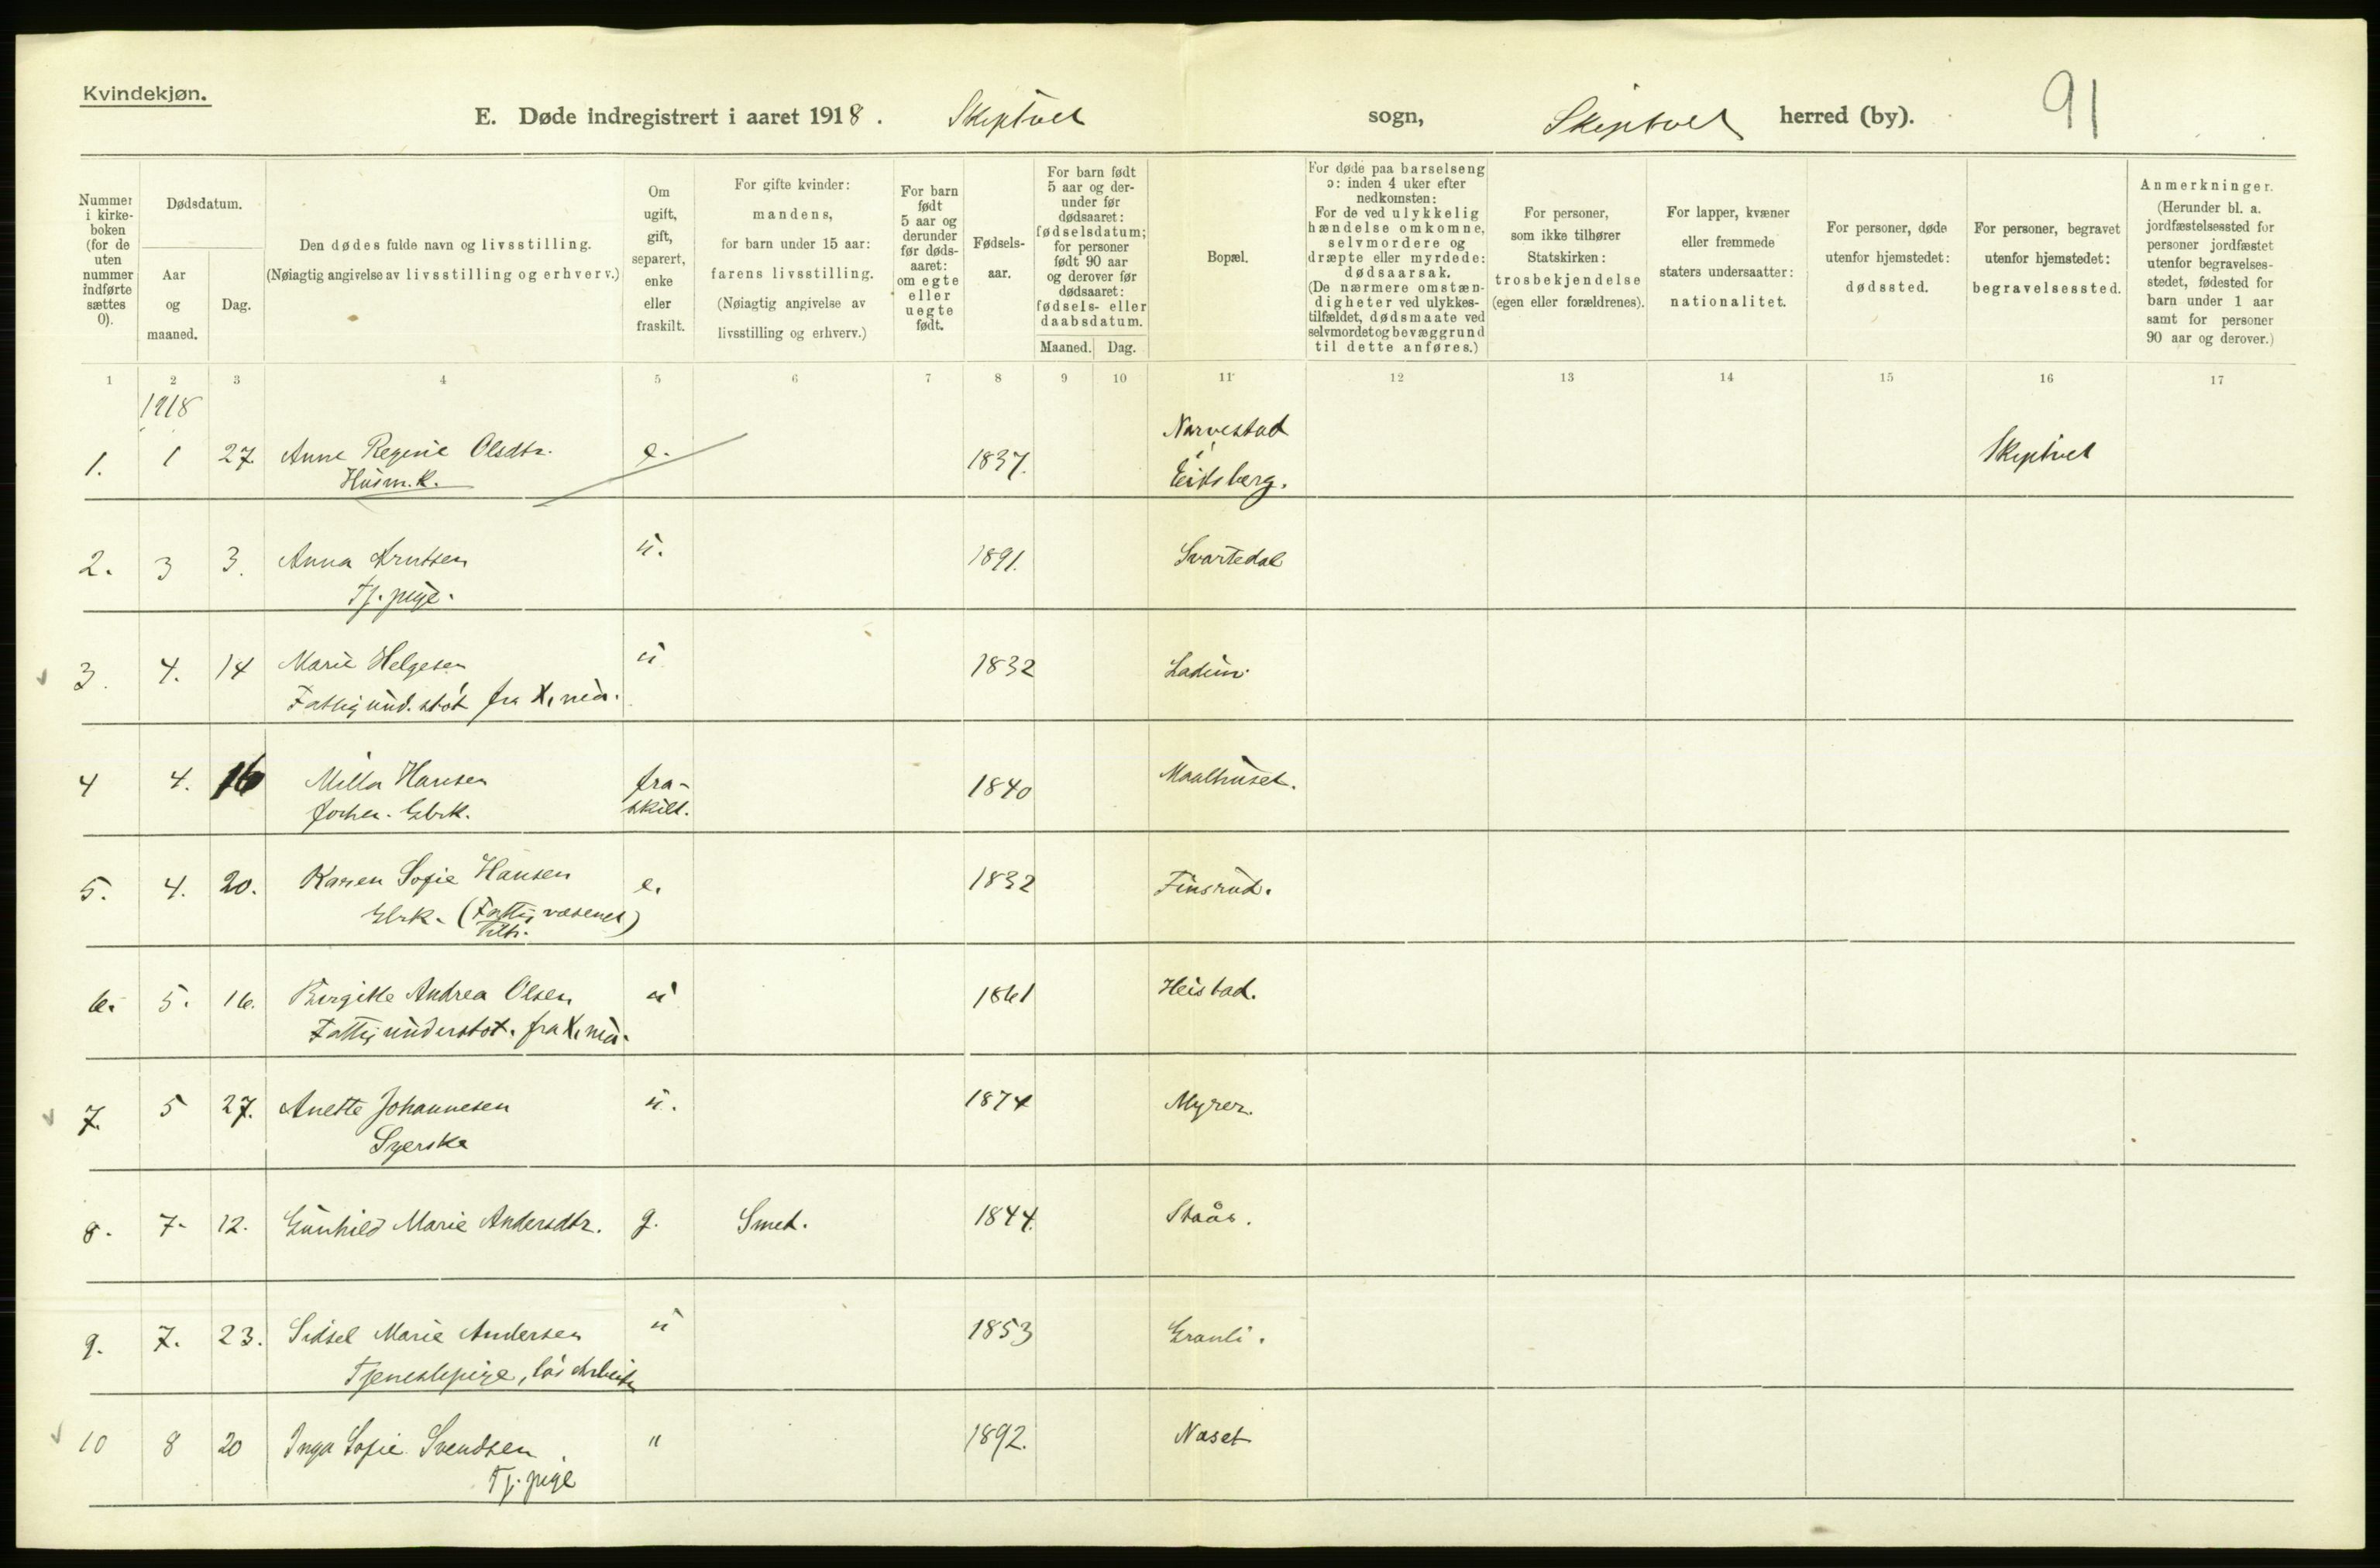 Kvindekjøn.
E. Døde indregistrert i aaret 1918. Skiptvet sogn, Skiptvet herred (by). 91
Nummer i kirke-boken (for de uten nummer indførte sættes 0).
Dødsdatum.
Aar og maaned.
Dag.
Den dødes fulde navn og livsstilling.
(Nøiagtig angivelse av livsstilling og erhverv.)
Om ugift, gift, separert, enke eller fraskilt.
For gifte kvinder:
mandens,
for barn under 15 aar:
farens livsstilling.
(Nøiagtig angivelse av
livsstilling og erhverv.)
For barn født 5 aar og derunder før døds-aaret: om egte eller uegte født.
Fødsels-aar.
For barn født 5 aar og der-under før dødsaaret: fødselsdatum; for personer født 90 aar og derover før dødsaaret: fødsels- eller daabsdatum.
Maaned. Dag.
Bopæl.
For døde paa barselseng
ɔ: inden 4 uker efter
nedkomsten:
For de ved ulykkelig
hændelse omkomne,
selvmordere og
dræpte eller myrdede:
dødsaarsak.
(De nærmere omstæn-
digheter ved ulykkes-
tilfældet, dødsmaate ved
selvmordet og bevæggrund
til dette anføres.)
For personer,
som ikke tilhører
Statskirken:
trosbekjendelse
(egen eller forældrenes).
For lapper, kvæner
eller fremmede
staters undersaatter:
nationalitet.
For personer, døde
utenfor hjemstedet:
dødssted.
For personer, begravet
utenfor hjemstedet:
begravelsessted.
Anmerkninger.
(Herunder bl. a.
jordfæstelsessted for
personer jordfæstet
utenfor begravelses-
stedet, fødested for
barn under 1 aar
samt for personer
90 aar og derover.)
1 2 3 4 5 6 7 8 9 10 11 12 13 14 15 16 17
1918
1. 1 27. Anne Regine Olsdtr. e. 1837. Narvestad Skiptvet
Husm.k. Eidsberg.
2. 3 3. Anna Arntsen u. 1891. Svartedal
Tj. pige.
3. 4. 14 Marie Helgesen u 1832 Ladim
Fattigund. støt fra
4 4. 16 Milla Hansen fra- 1840 Maalhuset.
Gbrk. skilt.
5. 4. 20. Karen Sofie Hansen e. 1832 Finsrud.
Gbrk. (Fattigvæsenet)
6. 5. 16. Birgitte Andrea Olsen u 1861 Heistad.
Fattigunderstøt. fra
7. 5 27. Anette Johannesen u. 1874 Myrer.
Syerske
8. 7. 12. Gunhild Marie Andersdtr. g. Smed. 1844. Staås.
9. 7. 23. Sidsel Marie Andersen u 1853 Granli.
Tjenestepige, løs arbeide
10 8 20 Inga Sofie Svendsen " 1892. Næset
Tj. pige